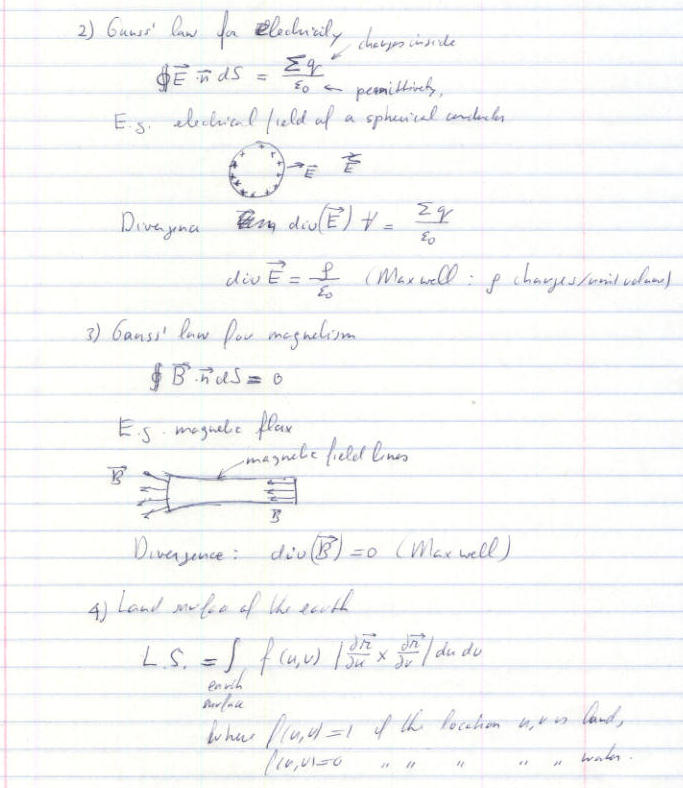 2) Gauss' law for electricity
charges inside
∮ E⃗ · n⃗ dS = Σq / ε₀ ← permittivity,
E.g. electrical field of a spherical conductor
E⃗ E⃗
Divergence div(E⃗) V = Σq / ε₀
div E⃗ = ρ / ε₀ (Maxwell : ρ charges/unit volume)
3) Gauss' law for magnetism
∮ B⃗ · n⃗ dS = 0
E.g. magnetic flux
magnetic field lines
B⃗
B
Divergence : div(B⃗) = 0 (Maxwell)
4) Land surface of the earth
L.S. = ∫ f(u,v) |∂r⃗/∂u × ∂r⃗/∂v| du dv
earth
surface
where f(u,v)=1 if the location u,v is land,
f(u,v)=0 " " " " " water.